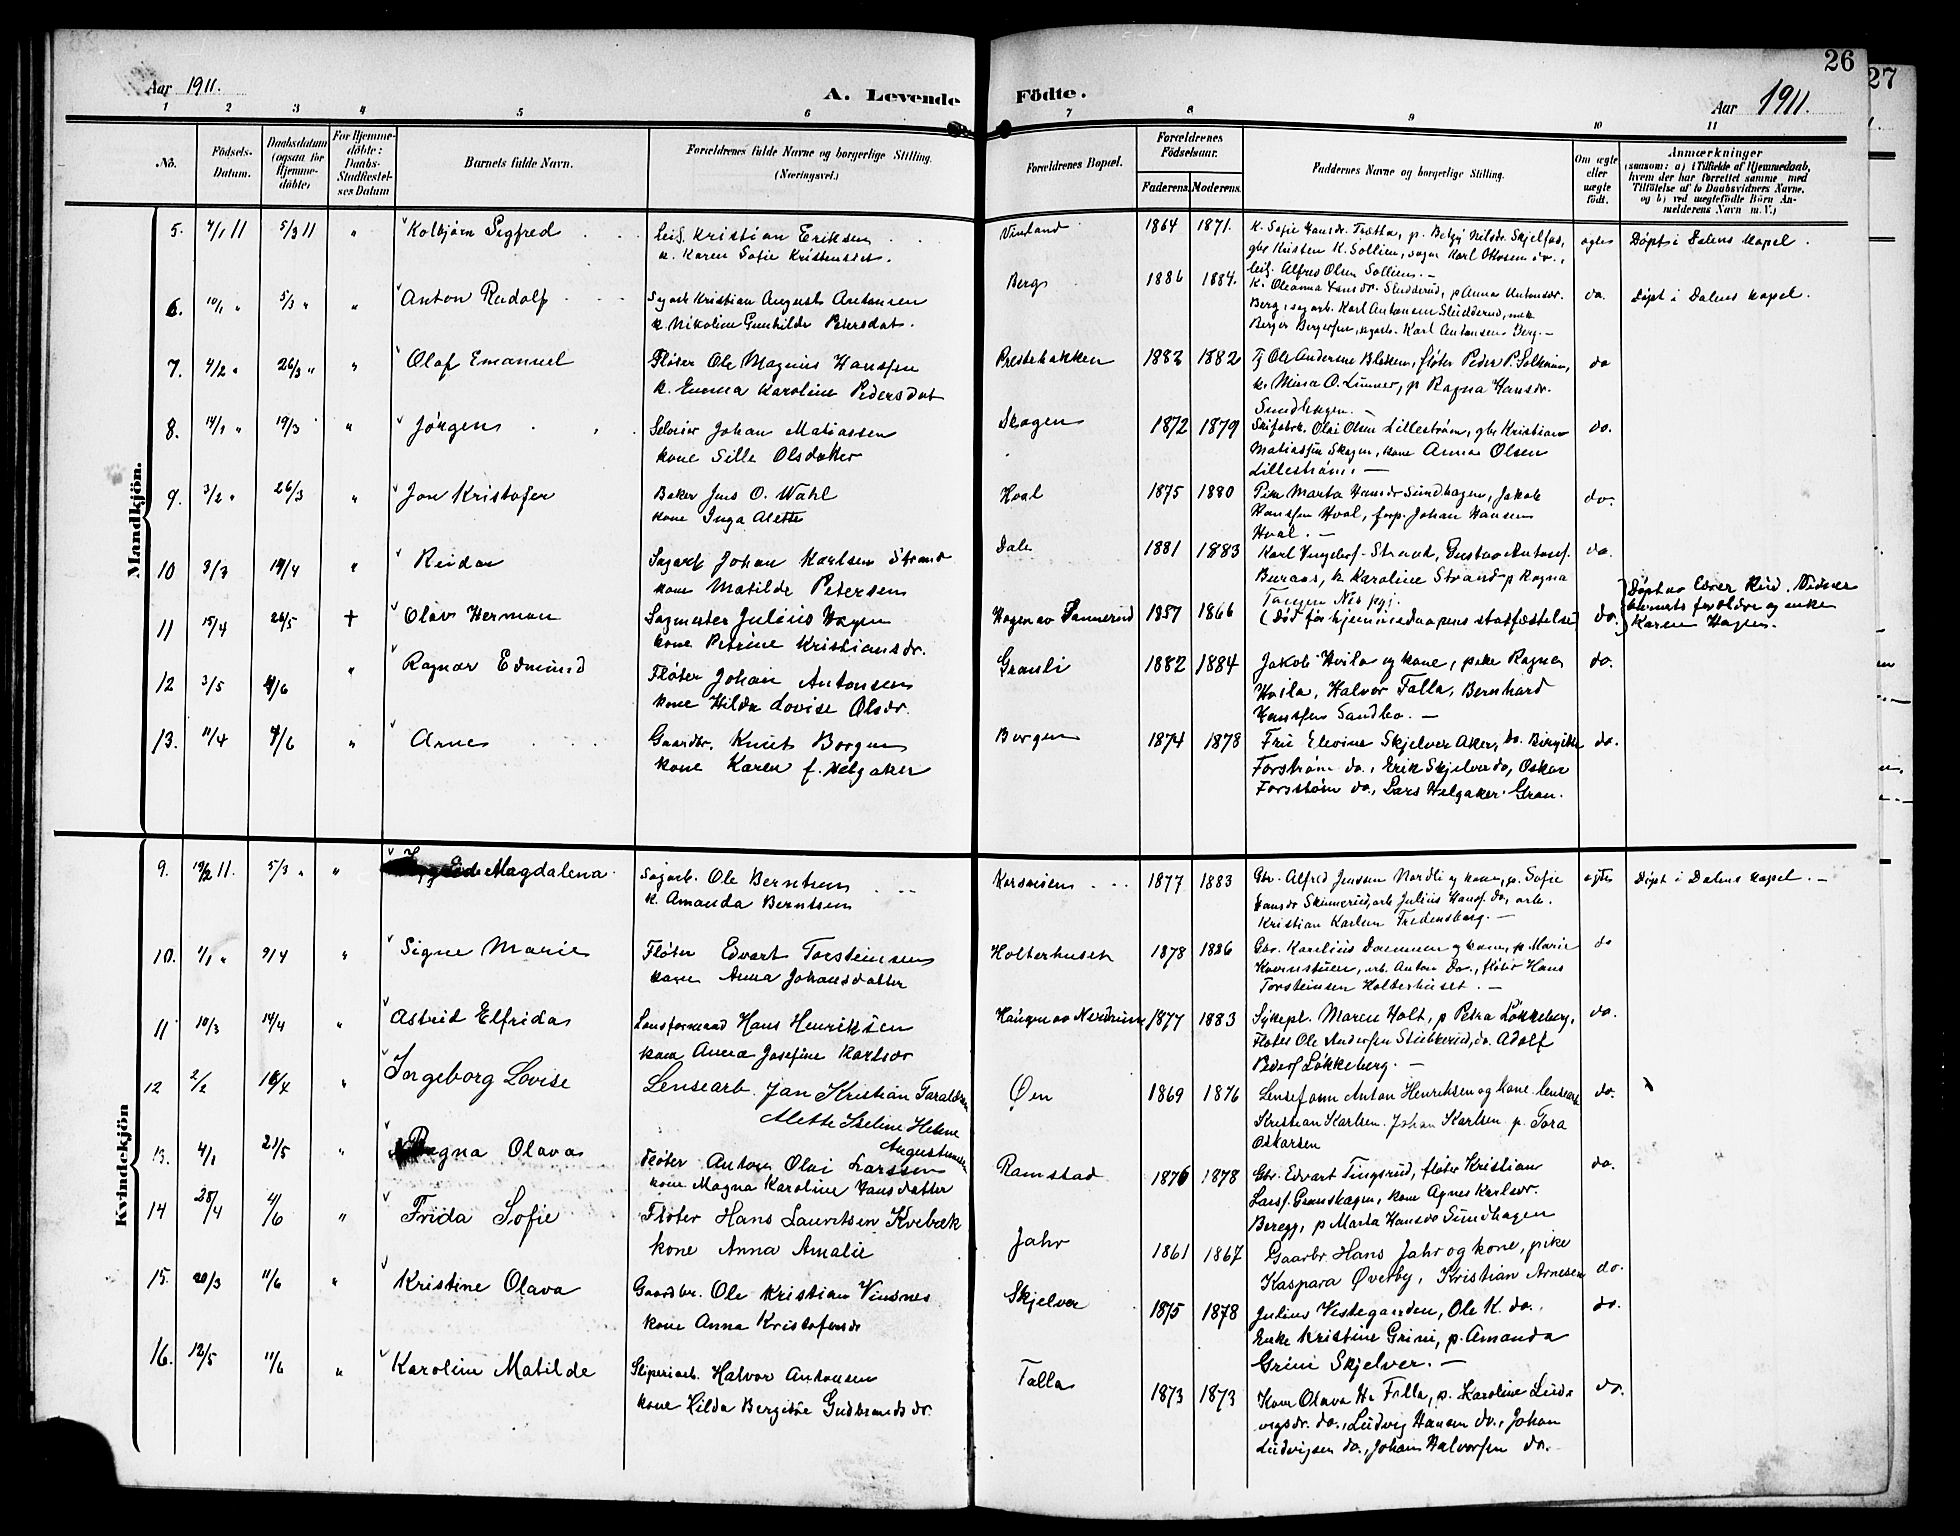 26
27
Aar 1911.
A. Levende Födte.
Aar 1911.
1 2 3 4 5 6 7 8 9 10 11
Nö.
Födsels-Datum.
Daabsdatum (ogsaa for Hjemmedöbte)
For Hjemmedöbte: Daabs-Stadfæstelses Datum
Barnets fulde Navn.
Forældrenes fulde Navne og borgerlige Stilling. (Næringsvei.)
Forældrenes Bopæl.
Forældrenes Födselsaar.
Faderens. Moderens.
Faddernes Navne og borgerlige Stilling.
Om ægte eller uægte født.
Anmærkninger
(saasom: a) i Tilfælde af Hjemmedaab,
hvem der har forrettet samme med
Tilföielse af to Daabsvidners Navne,
og b) ved uægtefödte Börn An-
melderens Navn m. V.)
Mandkjön.
5. 7/1 11 5/3 11 " Kolbjørn Sigfred
Kristian Eriksen
k. Karen Sofie Kristensdt.
1864 1871.
ægte Døpt i Dalens kapel.
6. 10/1 " 5/3 " " Anton Rudolf
Sagarb Kristian August Antonsen
k. Nikoline Gunhilde Petersdat.
Berg 1886 1884.
Berg, sagarb. Karl Antonsen Sludderud,
Karl Antonsen Berg. —
do. Døpt i Dalens kapel.
7. 4/2 " 26/3 " " Olaf Emanuel
Fløter Ole Magnus Hansen
k. Emma Karoline Pedersdat
Prestebakken 1883 1882
k. Mina O. Linner, p Ragna Hansdr.
Sundhagen. —
do
8. 14/1 " 19/3 " Jørgen
Johan Matiassen
kone Sille Olsdatter
Skogen 1872 1879
Olai Olsen Lillestrøm, gbr Kristian
Matiassen Skogen, kone Anna Olsen
Lillestrøm. —
do.
9. 3/2 " 26/3 " Jon Kristofer
Baker Jens O. Wahl
kone Inga Alette
Hval 1875 1880
Pike Marta Hansdr Sundhagen, Jakob
Hanssen Hval, forp. Johan Hansen
Hval. —
do.
10 3/3 19/4 " Reidar
Sagarb Johan Karlsen Strand
kone Matilde Petersen
Dale 1881 1883
Karl Strand, Gustav
Buraas, k Karoline Strand p Ragna
Tangen Nes pgj.
do.
11 15/4 26/5 + Olav Herman
Sagmester Julius Hagen
kone Petrine Kristiansdr.
Hagen av Sannerud 1857 1866
(død før hjemmedaapens stadfæstelse)
do. Døpt av lærer Rud. Vidner
barnets forældre og enke
Karen Hagen.
12 3/5 4/6 " Ragnar Edmund
Fløter Johan Antonsen
kone Hilda Lovise Olsdr.
Granli 1882 1884
Jakob Hvila og kone, pike Ragna
Hvila, Halvor Falla, Bernhard
Hanssen Sandbo. —
do.
13. 11/4 4/6 " Arne
Gaardbr. Knut Borgen
kone Karen f. Helgaker
Borgen 1874 1878
Fru Elevine Skjelver Aker, do. Birgitte
Forstrøm do., Erik Skjelver do, Oskar
Forstrøm do., Lars Helgaker Gran.
do.
Kvindekjön
9. 19/2 11. 5/3 " " Magdalena
Sagarb. Ole Berntsen
k. Amanda Berntsen
1877 1883
Gbr. Alfred Jenssen Nordli og kone, p. Sofie
Hansdr Skinnerud, arb Julius Hansf. do, arb.
Kristian Karlsen Fredensborg. —
egte Døpt i Dalens kapel. —
10. 1/1 " 9/4 " Signe Marie
Fløter Edvart Torsteinsen
kone Anna Johansdatter
Holterhuset 1878 1886
Gbr. Karelius og kone, p. Marie
Kvernstuen, arb. Anton do., fløter Hans
Torsteinsen Holterhuset. —
do
11 10/3 14/4 " Astrid Elfrida
Lensformand Hans Henriksen
kone Anna Josefine Karlsdr
Haugen av Nerdrum 1877 1883
Sykepl. Maren Holt, p Petra Løkkeberg,
Fløter Ole Andersen do. Adolf
Pedersf Løkkeberg. —
do.
12 2/2 16/4 " Ingeborg Lovise
Lensearb. Jan Kristian Taraldsen
Alette Iseline Helene
Augustinsen
Øen 1869 1876
Lensform Anton Henriksen og kone. lensearb
Kristian Karlsen. Johan Karlsen p. Tora
Oskarsen
do.
13. 4/1 21/5 " Ragna Olava
Fløter Anton Olai Larssen
kone Magna Karoline Hansdatter
Ramstad 1876 1878
Gbr. Edvart Tingsrud, fløter Kristian
Larsf. Granskogen, kone Agnes Karlsdr.
Beregg, p Marta Hansdr Sundhagen
do.
14 28/4 4/6 " Frida Sofie
Fløter Hans Lauritsen Kvebæk
kone Anna Amalie
Jahr 1861 1867
Gaarbr. Hans Jahr og kone, pike
Kaspara Øverby, Kristian Arnesen
do.
15. 20/3 11/6 " Kristine Olava
Gaardbr. Ole Kristian Vinsnes
kone Anna Kristofersdr
Skjelver 1875 1878
Julius Vestegaarden, Ole K. do.,
Enke Kristine Grini, p. Amanda
Grini Skjelver. —
do.
16. 12/5 11/6 " Karoline Matilde
Sliperiarb. Halvor Antonsen
kone Hilda Bergitte Gudbrandsdr.
Falla 1873 1873
Kone Olava H. Falla, p. Karoline Lud-
vigsdr. do., Ludvig Hansen do., Johan
Ludvigsen do., Johan Halvorsen do.
do.